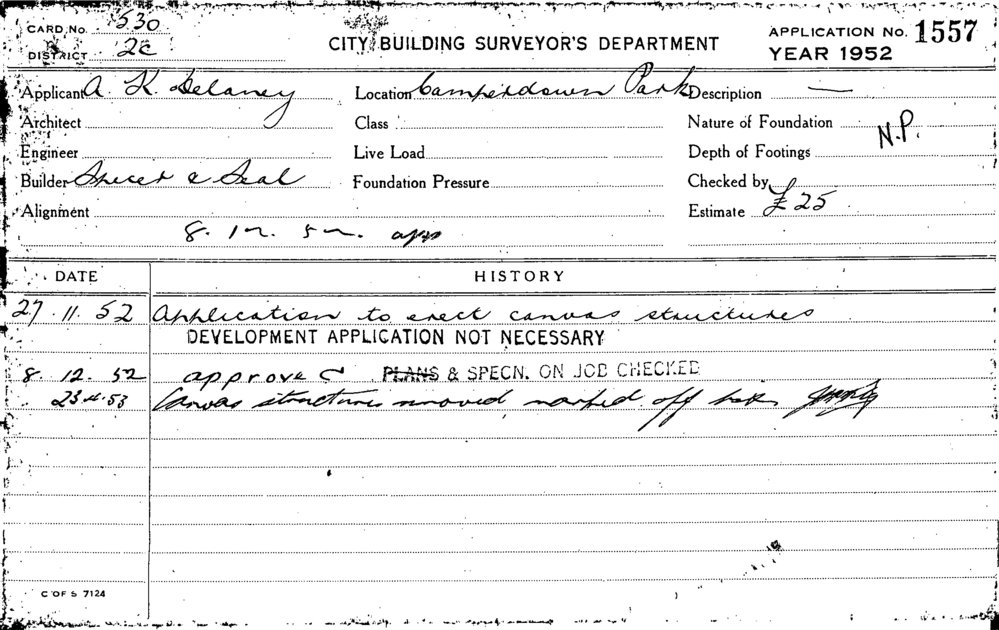 CARD No. 530
DISTRICT 2c
CITY BUILDING SURVEYOR'S DEPARTMENT
APPLICATION No. 1557
YEAR 1952
Applicant A. K. Delaney
Location Camperdown Park
Description —
Architect
Class
Nature of Foundation N.P.
Engineer
Live Load
Depth of Footings
Builder & Seal
Foundation Pressure
Checked by
Alignment
Estimate £25
8. 12. 52. app
DATE HISTORY
27. 11. 52 Application to erect canvas structures
DEVELOPMENT APPLICATION NOT NECESSARY
8. 12. 52 approved PLANS & SPECN. ON JOB CHECKED
23.4.53 Canvas structures removed, marked off
C OF S 7124